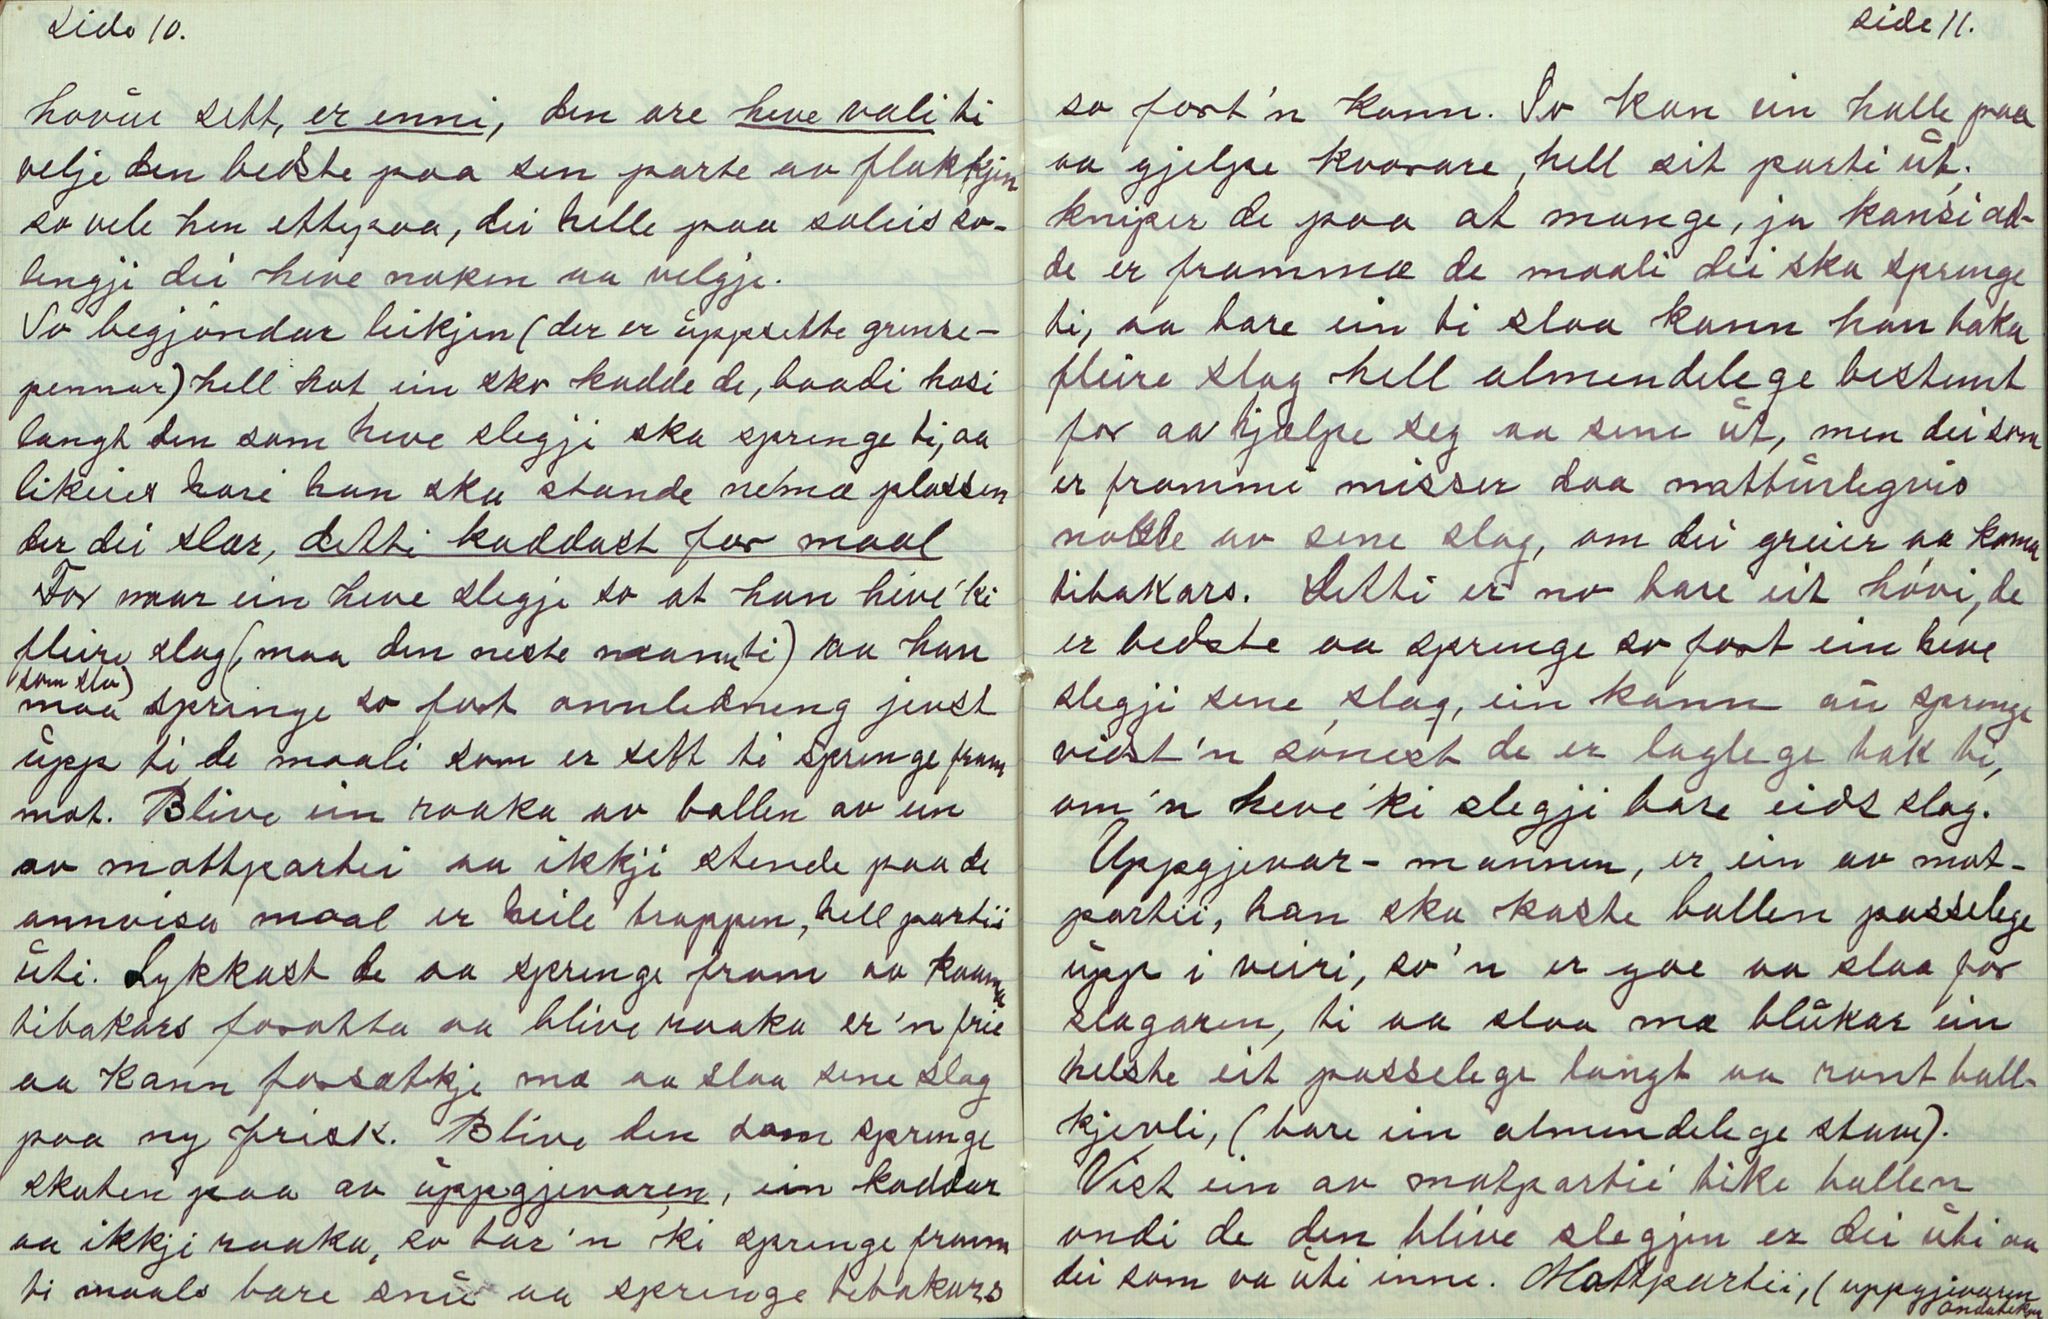 Side 10.
hovüe sett, er enni, den are heve vali ti
velje den bedste paa sen parte av flakkjen
so vele hen ettepaa, dei helle paa soleis so-
lengji dei heve noken aa velgje.
So begjöndar leikjen (der er üppsette grense-
pennar) hell hot ein sko kadde de, baadi hosi
langt den som heve slegji ska springe ti, aa
likeies hori han ska stande nemæ plassen
der dei slær, detti kaddast for maal
For naar ein heve slegje so at han heve'ki
fleire slag (maa den neste næanneti) aa han
(som slo)
maa springe so fort annledneng jevst
üpp ti de maali som er sett ti springe fram
mot. Blive ein raaka av ballen av ein
av mottpartei aa ikkji stende paa de
annvisa maal er heile troppen, hell partii
üti. Lykkast de aa springe fram aa kaama
tibakars foruttta aa blive raaka er'n frie
aa kann forsætkje mæ aa slaa sene slag
paa ny frisk. Blive den som springe
skoten paa av üppgjevaren, ein kaddar
aa ikkji raaka, so tar'n 'ki springe framm
ti maals bare snü aa springe tebakars
side 11.
so fort'n kann. So kan ein halle paa
aa gjelpe kvorare, hell sit parti üt.
kniper de paa at mange, ja kansi ad-
de er frammæ de maali dei ska springe
ti, aa bare ein ti slaa kann han taka
fleire slag hell almendelege bestemt
for aa hjælpe seg aa sene üt, men dei som
er frammi misser daa nattürlegvis
nokke av sene slag, om dei greier aa koma
tibakars. Detti er no bare eit hövi, de
er bedste aa springe so fort ein heve
slegji sene slag, ein kann aü springe
vidst'n sönest de er laglege bak ti,
om'n heve'ki slegji bare eids slag.
Üppgjevar-mannen, er ein av mot-
partii, han ska kaste ballen passelege
üpp i veiri, so'n er goe aa slaa for
slagaren, ti aa slaa mæ blükar ein
helste eit passelege langt aa rant ball-
kjevli, (bare ein almendelege stave).
Vist ein av motpartii tike ballen
ondi de den blive slegjen er dei üti aa
dei som va üti inne. Mottpartii, (uppgjevaren
ondateken